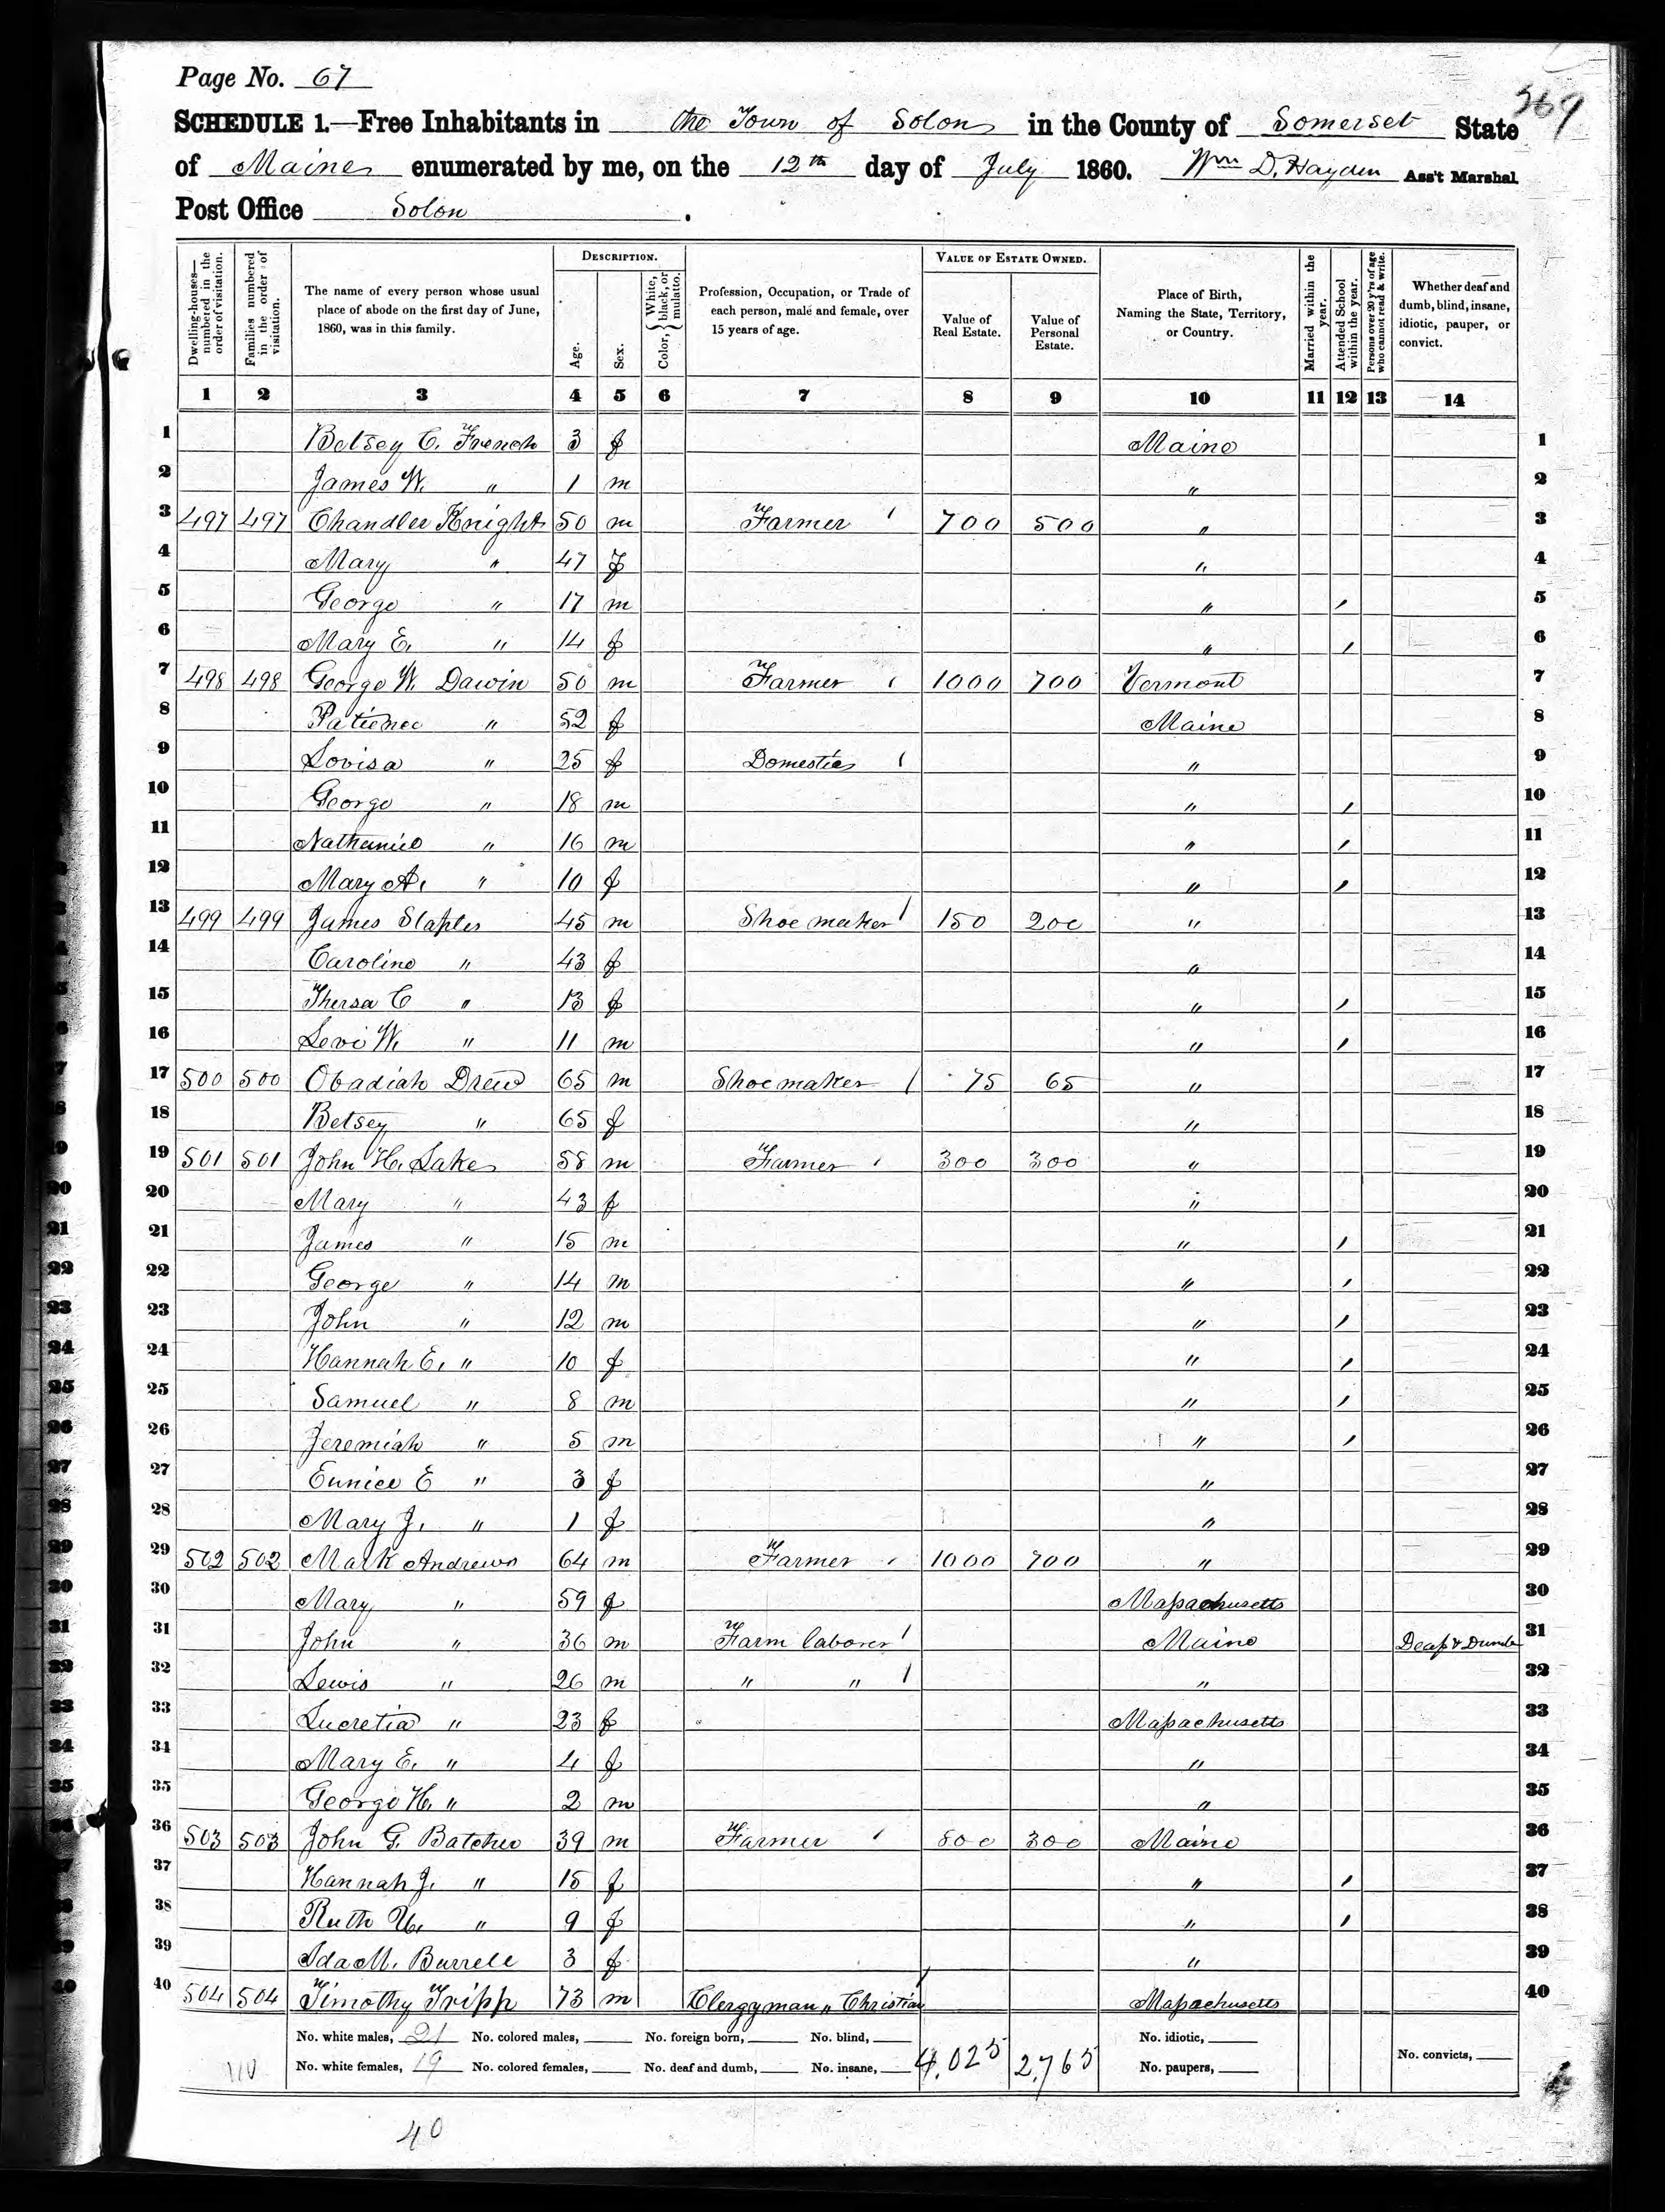 Page No. 67
369
SCHEDULE 1.—Free Inhabitants in the Town of Solon in the County of Somerset State
of Maine enumerated by me, on the 12th day of July 1860. Wm D. Hayden Ass't Marshal
Post Office Solon.
Dwelling-houses—numbered in the order of visitation.
Families numbered in the order of visitation.
The name of every person whose usual place of abode on the first day of June, 1860, was in this family.
DESCRIPTION.
Age.
Sex.
Color, { White, black, or mulatto.
Profession, Occupation, or Trade of each person, male and female, over 15 years of age.
VALUE OF ESTATE OWNED.
Value of Real Estate.
Value of Personal Estate.
Place of Birth, Naming the State, Territory, or Country.
Married within the year.
Attended School within the year.
Persons over 20 y'rs of age who cannot read & write.
Whether deaf and dumb, blind, insane, idiotic, pauper, or convict.
1 2 3 4 5 6 7 8 9 10 11 12 13 14
1 Betsey C. French 3 f Maine 1
2 James W. " 1 m " 2
3 497 497 Chandler Knights 50 m Farmer 700 500 " 3
4 Mary " 47 f " 4
5 George " 17 m " / 5
6 Mary E. " 14 f " / 6
7 498 498 George W. Dawin 50 m Farmer 1000 700 Vermont 7
8 Patience " 52 f Maine 8
9 Lovisa " 25 f Domestic " 9
10 George " 18 m " / 10
11 Nathaniel " 16 m " / 11
12 Mary A. " 10 f " / 12
13 499 499 James Staples 45 m Shoe maker 150 200 " 13
14 Caroline " 43 f " 14
15 Thersa C " 13 f " / 15
16 Levi W. " 11 m " / 16
17 500 500 Obadiah Drew 65 m Shoemaker 75 65 " 17
18 Betsey " 65 f " 18
19 501 501 John H. Lake 58 m Farmer 300 300 " 19
20 Mary " 43 f " 20
21 James " 15 m " / 21
22 George " 14 m " / 22
23 John " 12 m " / 23
24 Hannah E. " 10 f " / 24
25 Samuel " 8 m " / 25
26 Jeremiah " 5 m " / 26
27 Eunice E " 3 f " 27
28 Mary J. " 1 f " 28
29 502 502 Mark Andrews 64 m Farmer 1000 700 " 29
30 Mary " 59 f Massachusetts 30
31 John " 36 m Farm laborer Maine Deaf & Dumb 31
32 Lewis " 26 m " " " 32
33 Lucretia " 23 f Massachusetts 33
34 Mary E. " 4 f " 34
35 George H. " 2 m " 35
36 503 503 John G. Batchee 39 m Farmer 800 300 Maine 36
37 Hannah J. " 15 f " / 37
38 Ruth " 9 f " / 38
39 Ida M. Burrell 3 f " 39
40 504 504 Timothy Tripp 73 m Clergyman, Christian Massachusetts 40
No. white males, 21 No. colored males, No. foreign born, No. blind, No. idiotic,
No. white females, 19 No. colored females, No. deaf and dumb, No. insane, 4,025 2,765 No. paupers, No. convicts,
40